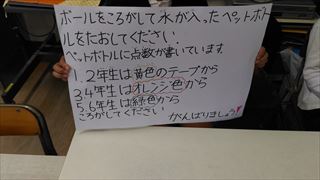 ボールをころがして水が入ったペットボト
ルをたおしてください。
ペットボトルに点数が書いています。
1.2年生は黄色のテープから
3.4年生はオレンジ色から
5.6年生は緑色から
ころがしてください
がんばりましょう!